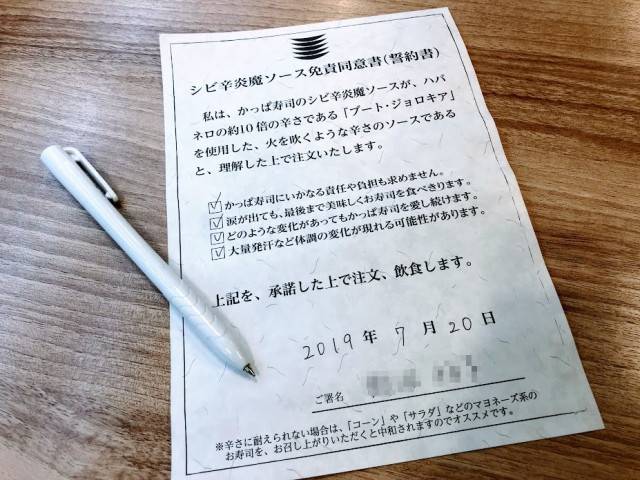 シビ辛炎魔ソース免責同意書(誓約書)
私は、かっぱ寿司のシビ辛炎魔ソースが、ハバ
ネロの約10倍の辛さである「ブート・ジョロキア」
を使用した、火を吹くような辛さのソースである
と、理解した上で注文いたします。
かっぱ寿司にいかなる責任や負担も求めません。
涙が出ても、最後まで美味しくお寿司を食べきります。
どのような変化があってもかっぱ寿司を愛し続けます。
大量発汗など体調の変化が現れる可能性があります。
上記を、承諾した上で注文、飲食します。
2019年7月20日
ご署名
※辛さに耐えられない場合は、「コーン」や「サラダ」などのマヨネーズ系の
お寿司を、お召し上がりいただくと中和されますのでオススメです。